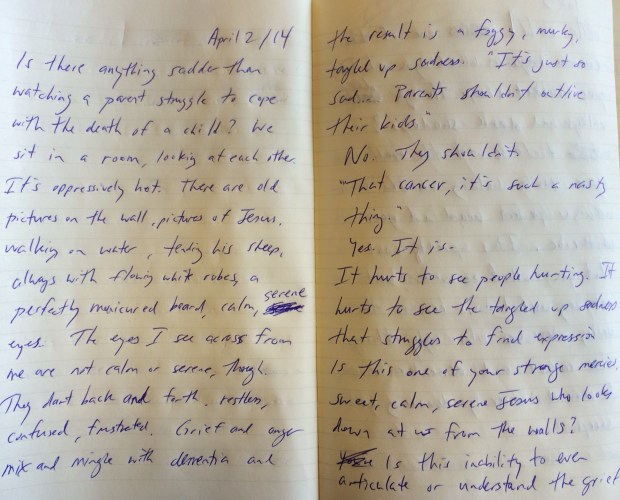 April 2/14
Is there anything sadder than
watching a parent struggle to cope
with the death of a child? We
sit in a room, looking at each other.
It's oppressively hot. There are old
pictures on the wall, pictures of Jesus,
walking on water, tending his sheep,
always with flowing white robes, a
perfectly manicured beard, calm, serene
eyes. The eyes I see across from
me are not calm or serene, though.
They dart back and forth, restless,
confused, frustrated. Grief and anger
mix and mingle with dementia and
the result is a foggy, murky,
tangled up sadness. "It's just so
sad... Parents shouldn't outlive
their kids"
No. They shouldn't.
"That cancer, it's such a nasty
thing."
Yes. It is.
It hurts to see people hurting. It
hurts to see the tangled up sadness
that struggles to find expression
Is this one of your strange mercies,
sweet, calm, serene Jesus who looks
down at us from the walls?
Is this inability to even
articulate or understand the grief